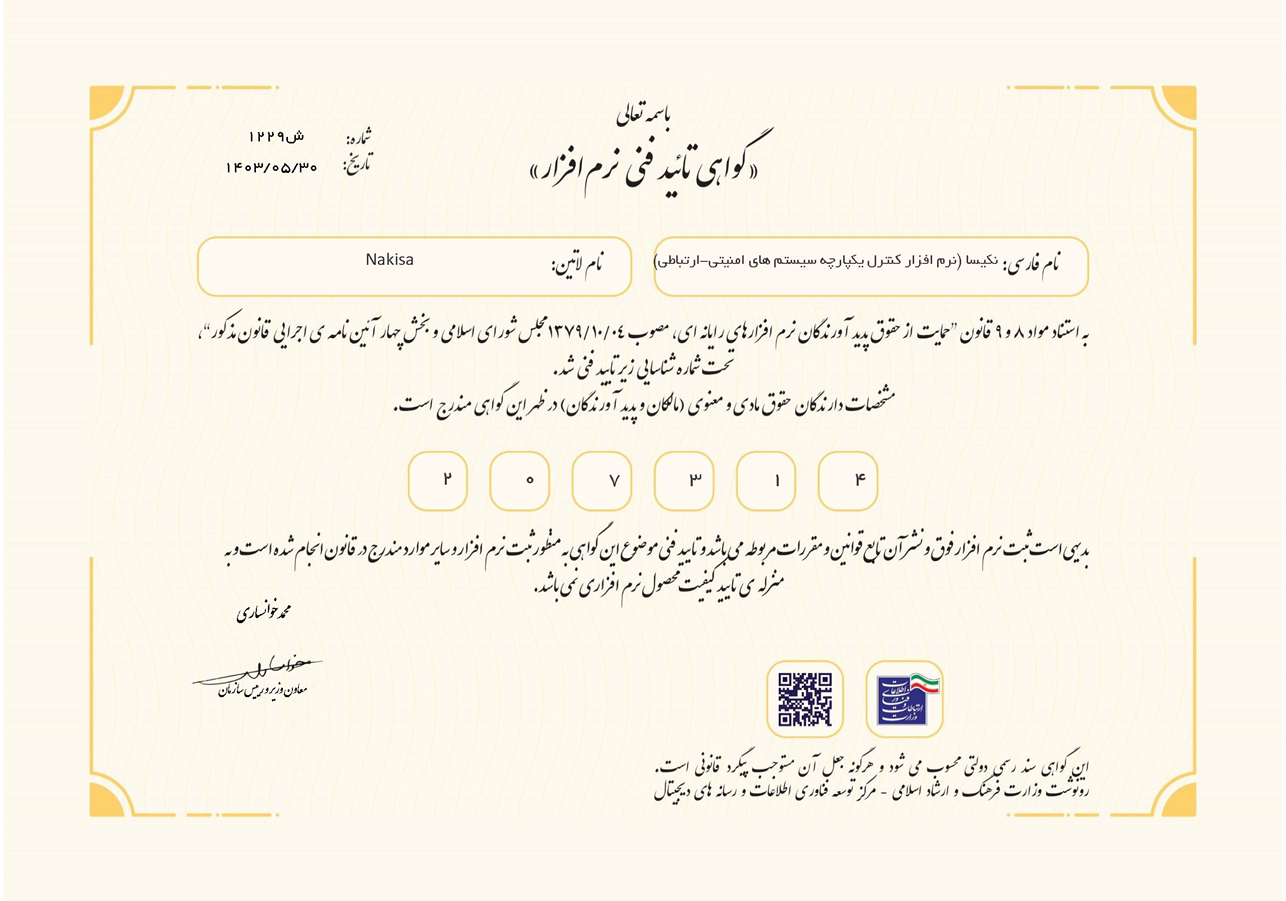 باسمه تعالی
«گواهی تائید فنی نرم افزار»
شماره: ش۱۲۲۹
تاریخ: ۱۴۰۳/۰۵/۳۰
نام فارسی: نکیسا (نرم افزار کنترل یکپارچه سیستم های امنیتی-ارتباطی)
نام لاتین: Nakisa
به استناد مواد ۸ و ۹ قانون "حمایت از حقوق پدید آورندگان نرم افزارهای رایانه ای، مصوب ۱۳۷۹/۱۰/۰۴ مجلس شورای اسلامی و بخش چهار آئین نامه ی اجرایی قانون مذکور"،
تحت شماره شناسایی زیر تایید فنی شد.
مشخصات دارندگان حقوق مادی و معنوی (مالکان و پدید آورندگان) در ظهر این گواهی مندرج است.
۲ ۰ ۷ ۳ ۱ ۴
بدیهی است ثبت نرم افزار فوق و نشر آن تابع قوانین و مقررات مربوطه می باشد و تایید فنی موضوع این گواهی به منظور ثبت نرم افزار و سایر موارد مندرج در قانون انجام شده است و به
منزله ی تایید کیفیت محصول نرم افزاری نمی باشد.
محمد خوانساری
معاون وزیر و رییس سازمان
وزارت ارتباطات و فناوری اطلاعات
این گواهی سند رسمی دولتی محسوب می شود و هرگونه جعل آن مستوجب پیگرد قانونی است.
رونوشت وزارت فرهنگ و ارشاد اسلامی - مرکز توسعه فناوری اطلاعات و رسانه های دیجیتال